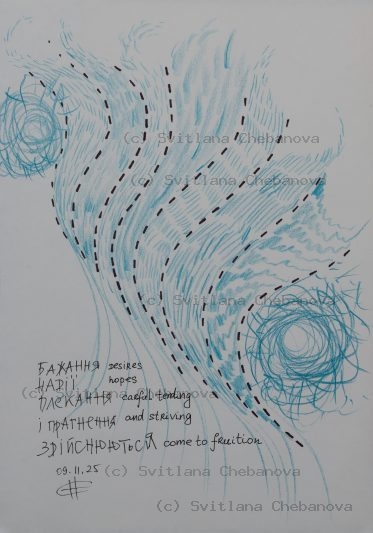 (c) Svitlana Chebanova
(c) Svitlana Chebanova
(c) Svitlana Chebanova
БАЖАННЯ desires
НАДІЇ hopes
ПЛЕКАННЯ careful tending
(c) Svitlana Chebanova
і ПРАГНЕННЯ and striving
ЗДІЙСНЮЮТЬСЯ come to fruition
09.11.25
(c) Svitlana Chebanova
(c) Svitlana Chebanova